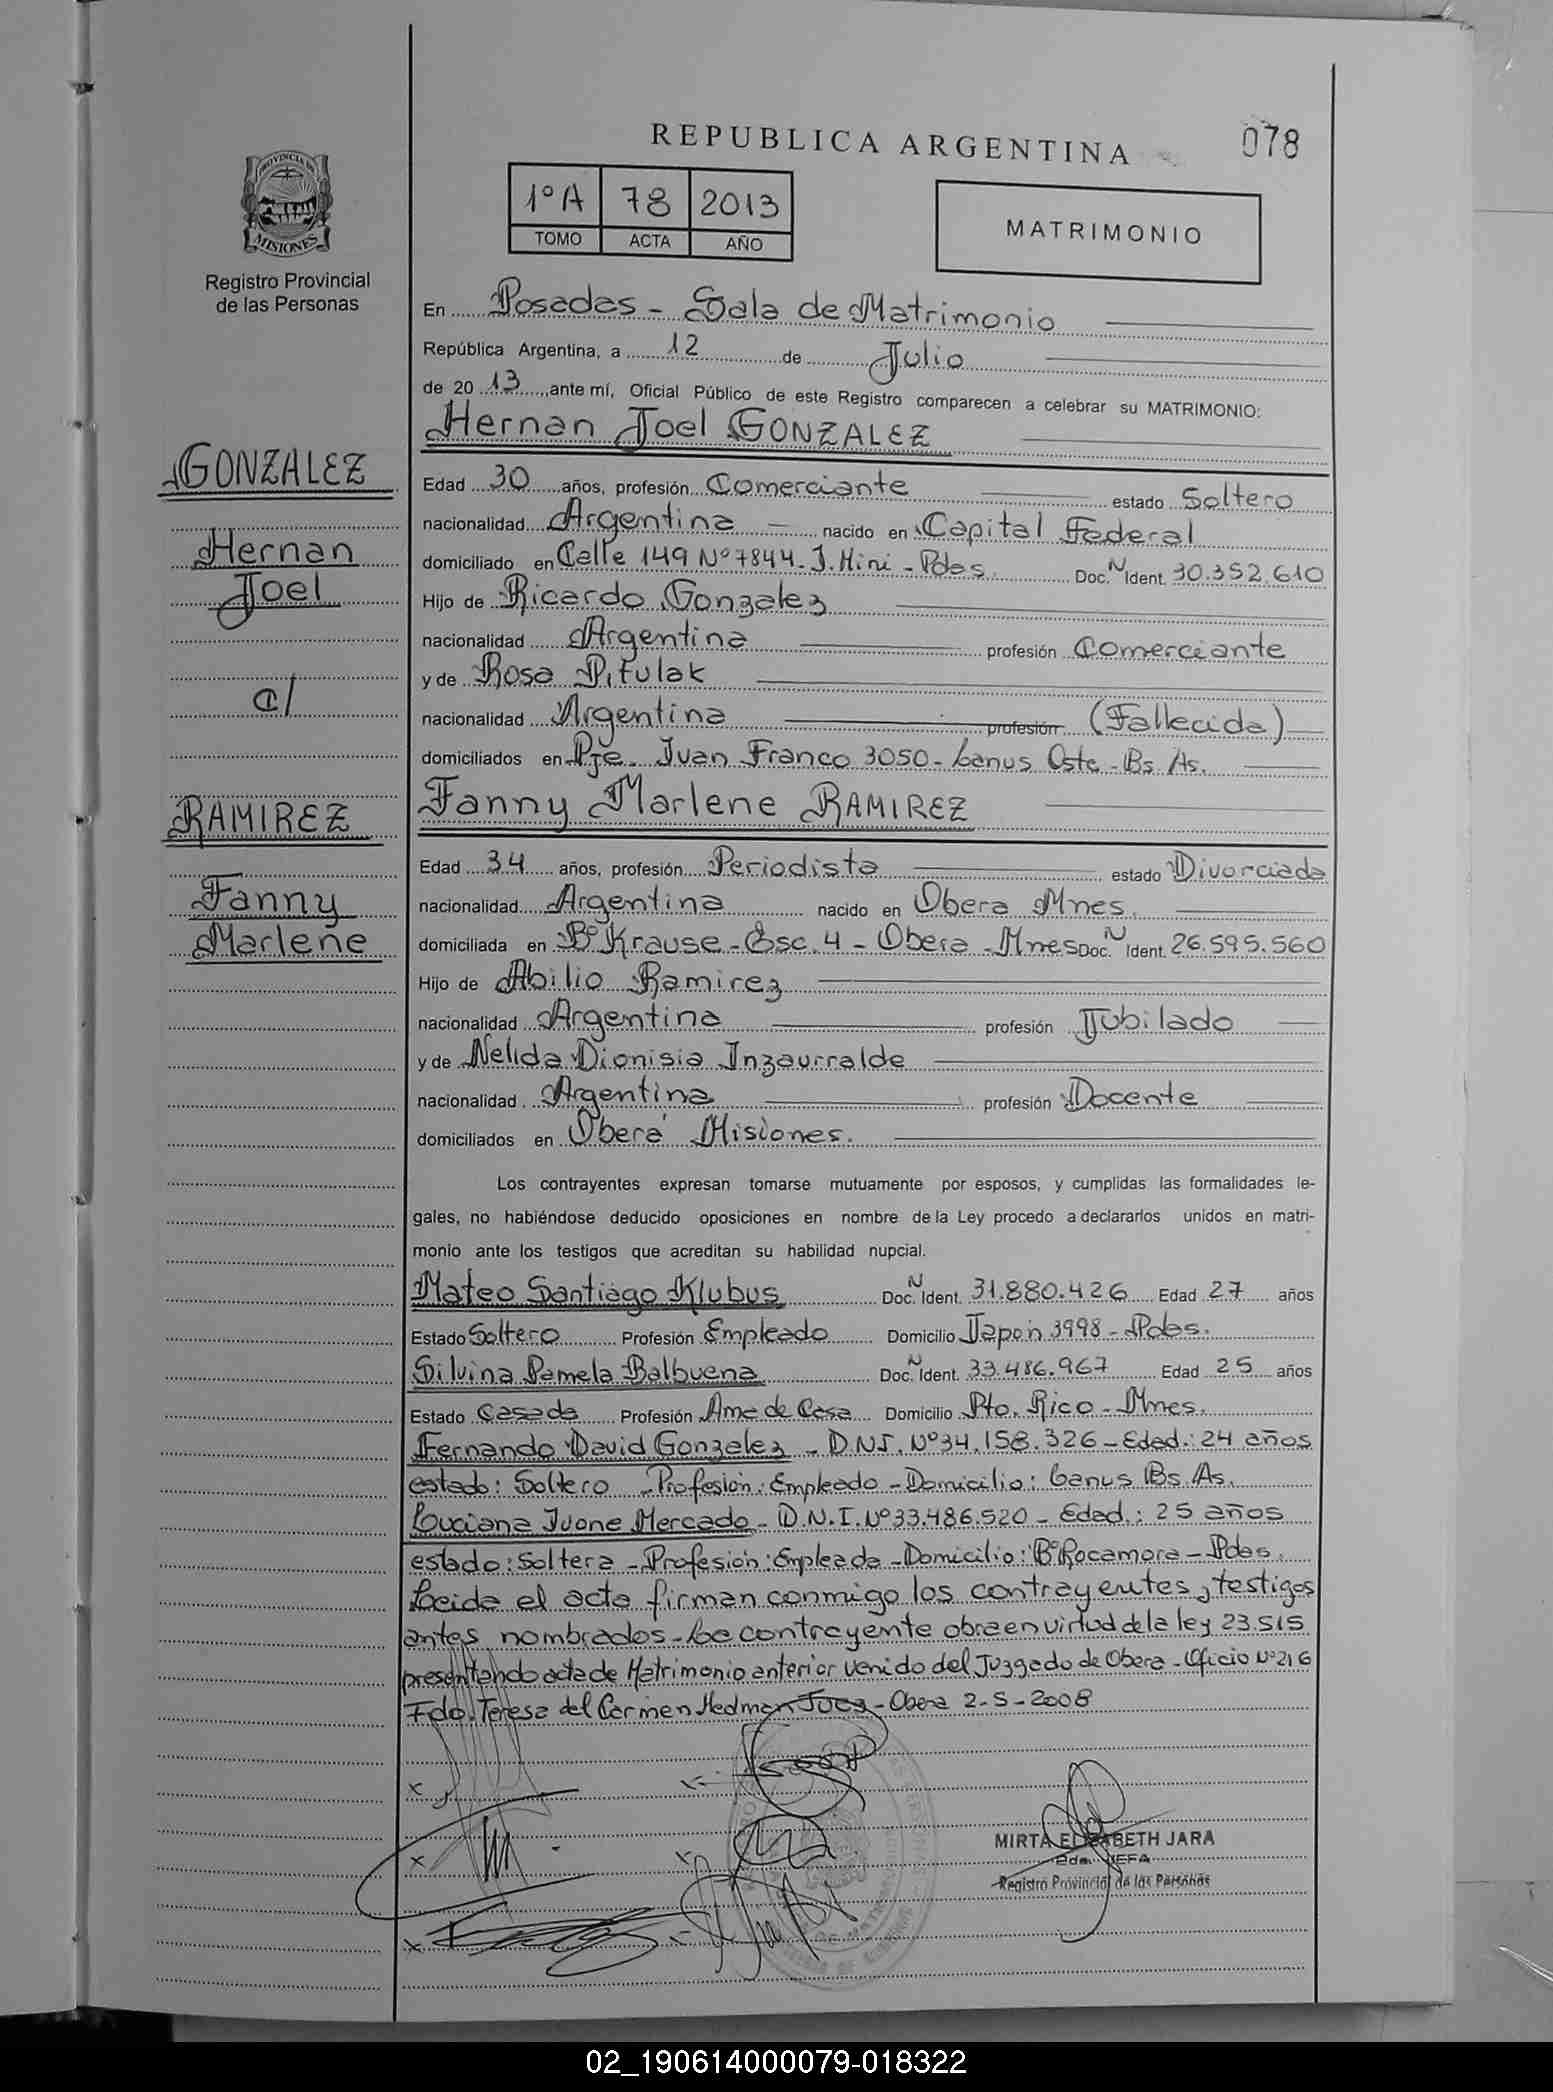 REPUBLICA ARGENTINA
078
1º A 78 2013
TOMO ACTA AÑO
MATRIMONIO
PROVINCIA DE
MISIONES
Registro Provincial
de las Personas
En Posadas - Sala de Matrimonio
República Argentina, a 12 de Julio
de 20 13, ante mí, Oficial Público de este Registro comparecen a celebrar su MATRIMONIO:
Hernan Joel GONZALEZ
GONZALEZ
Hernan
Joel
c/
RAMIREZ
Fanny
Marlene
Edad 30 años, profesión Comerciante estado Soltero
nacionalidad Argentina - nacido en Capital Federal
domiciliado en Calle 149 Nº 7844 - I. Mini - Pdas. Doc. N Ident. 30.352.610
Hijo de Ricardo Gonzalez
nacionalidad Argentina profesión Comerciante
y de Rosa Pitulak
nacionalidad Argentina profesión (Fallecida)
domiciliados en Pje. Juan Franco 3050 - Lanus Oste - Bs. As.
Fanny Marlene RAMIREZ
Edad 34 años, profesión Periodista estado Divorciada
nacionalidad Argentina nacido en Obera Mnes.
domiciliada en Bº Krause - Esc. 4 - Obera - Mnes Doc. N Ident. 26.595.560
Hijo de Abilio Ramirez
nacionalidad Argentina profesión Jubilado
y de Nelida Dionisia Inzaurralde
nacionalidad Argentina profesión Docente
domiciliados en Oberá Misiones.
Los contrayentes expresan tomarse mutuamente por esposos, y cumplidas las formalidades le-
gales, no habiéndose deducido oposiciones en nombre de la Ley procedo a declararlos unidos en matri-
monio ante los testigos que acreditan su habilidad nupcial.
Mateo Santiago Klubus Doc. N Ident. 31.880.426 Edad 27 años
Estado Soltero Profesión Empleado Domicilio Japón 3998 - Pdas.
Silvina Pamela Balbuena Doc. N Ident. 33.486.967 Edad 25 años
Estado Casada Profesión Ama de Casa Domicilio Pto. Rico - Mnes.
Fernando David Gonzalez - D.N.I. Nº 34.158.326 - Edad: 24 años
estado: Soltero - Profesión: Empleado - Domicilio: Lanus Bs. As.
Luciana Ivone Mercado - D.N.I. Nº 33.486.520 - Edad: 25 años
estado: Soltera - Profesión: Empleada - Domicilio: Bº Rocamora - Pdas.
Leida el acta firman conmigo los contrayentes, testigos
antes nombrados - La contrayente obra en virtud de la ley 23.515
presentando acta de Matrimonio anterior venido del Juzgado de Obera - Oficio Nº 216
Fdo. Teresa del Carmen Hedman Jueza - Obera 2-5-2008
MIRTA ELIZABETH JARA
2da. JEFA
Registro Provincial de las Personas
02_190614000079-018322